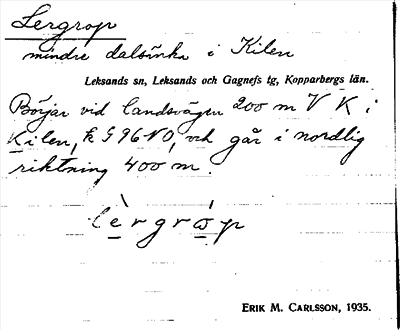 Lergrop
mindre dalsänka i Kilen
Leksands sn, Leksands och Gagnefs tg, Kopparbergs län.
Börjar vid landsvägen 200 m V K i
Kilen, k G 96 NO, och går i nordlig
riktning 400 m.
lèrgròp
ERIK M. CARLSSON, 1935.